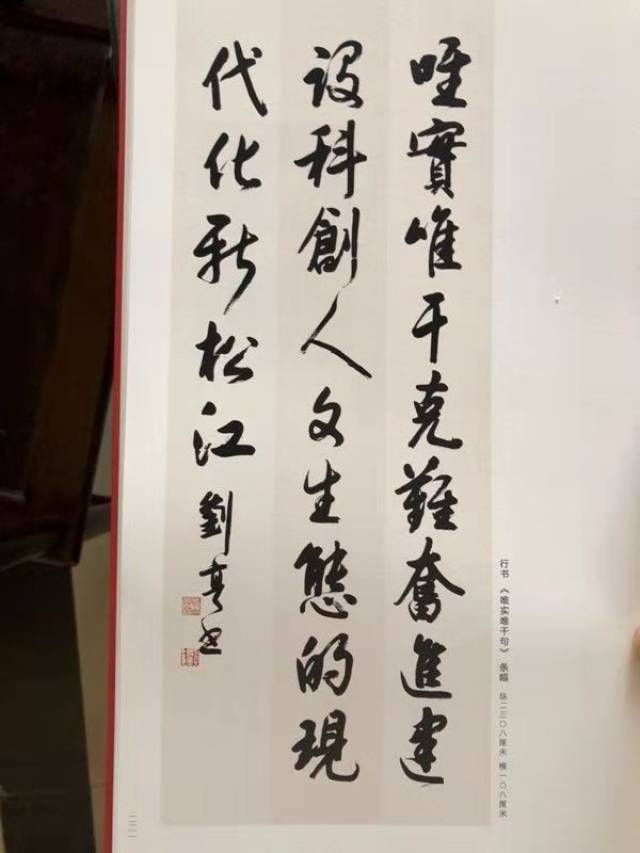 唯實唯干克難奮進建
設科創人文生態的現
代化新松江
劉亨书
行书 《唯实唯干句》 条幅 纵二三〇八厘米 横一〇八厘米